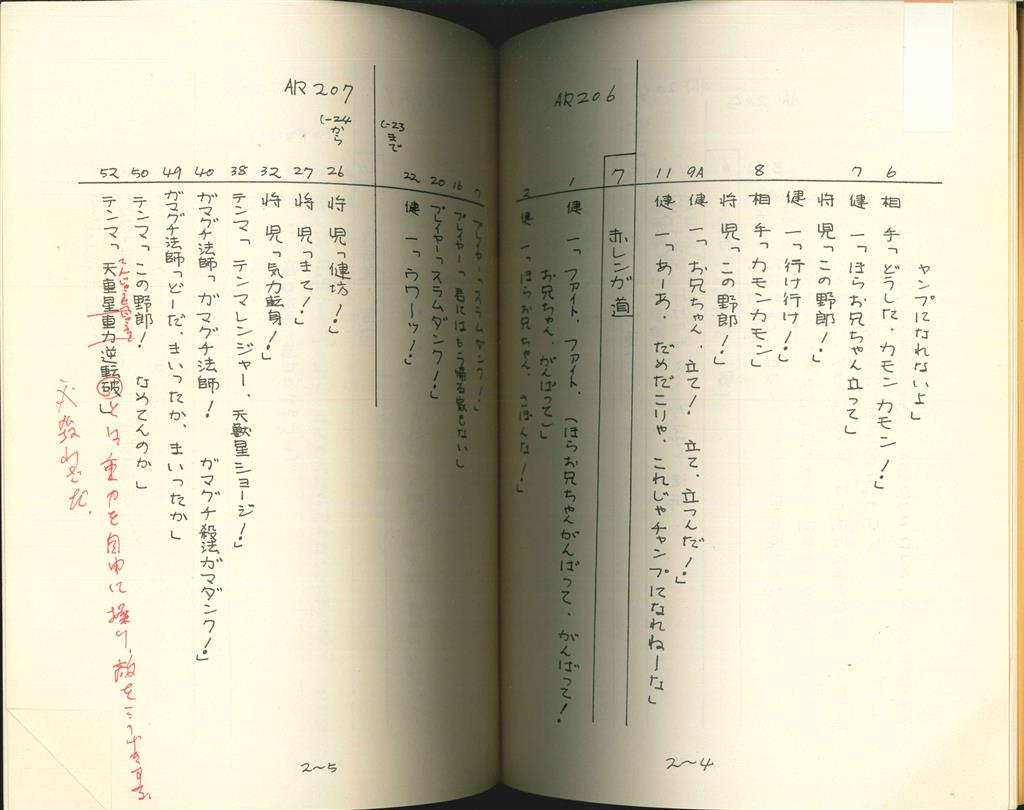 ャンプになれないよ」
6 相 手「どうした、カモン カモン!」
7 健 一「ほらお兄ちゃん立って」
将 児「この野郎!」
健 一「行け行け!」
8 相 手「カモンカモン」
将 児「この野郎!」
9A 健 一「お兄ちゃん、立て! 立て、立つんだ!」
11 健 一「あーあ、だめだこりゃ、これじゃチャンプになれねーな」
AR206
7 赤レンガ道
1 健 一「ファイト、ファイト、(ほらお兄ちゃんがんばって、がんばって!
お兄ちゃん、がんばって)」
2 健 一「ほらお兄ちゃん、さぼんな!」
7 プレイヤー「スラムダンク!」
16 プレイヤー「君にはもう帰る家もない」
20 プレイヤー「スラムダンク!」
22 健 一「ウワーッ!」
(-23まで
2〜4
AR207
(-24から
26 将 児「健坊!」
27 将 児「まて!」
32 将 児「気力転身!」
38 テンマ「テンマレンジャー、天獣星ショージ!」
40 ガマグチ法師「ガマグチ法師! ガマグチ殺法ガマダンク!」
49 ガマグチ法師「どーだ、まいったか、まいったか」
50 テンマ「この野郎! なめてんのか」
52 テンマ「天重星重力逆転破」
とは重力を自由に操り、敵をこうげきする
必殺わざだ。
2〜5